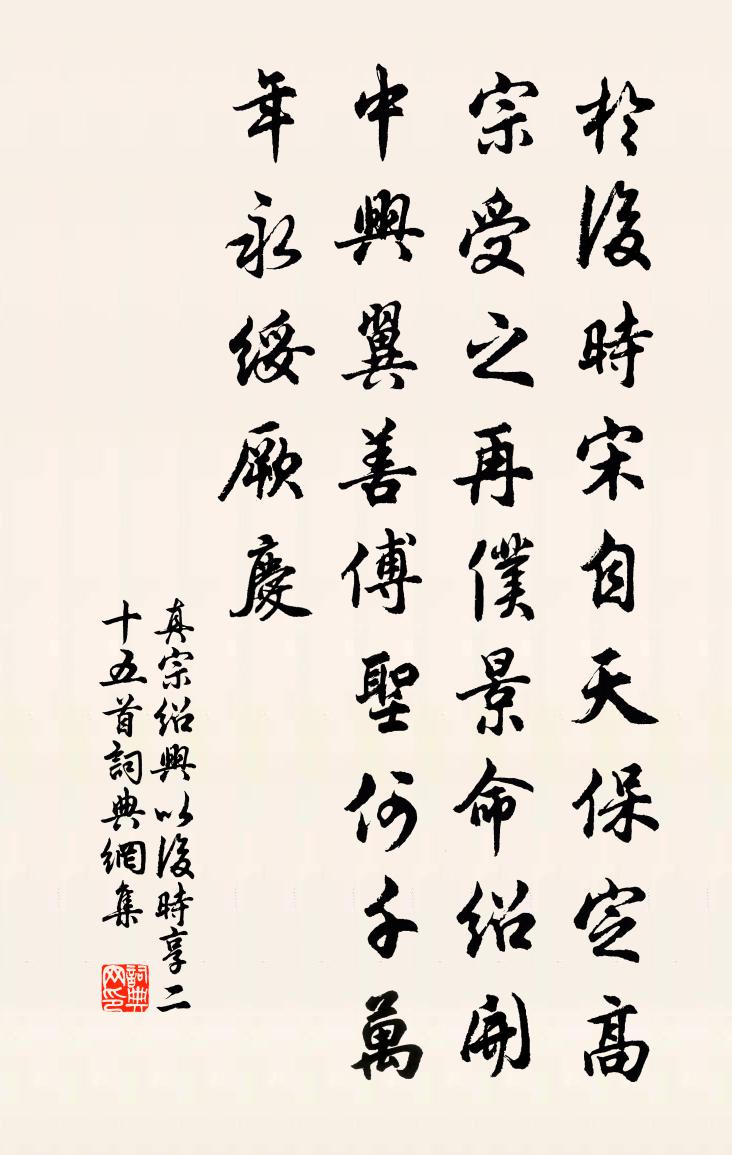 於後時宋自天保定高
宗受之再僕景命紹開
中興翼善傅聖何千萬
年永綏厥慶
真宗紹興以後時享二
十五首詞典網集
詞典
网印